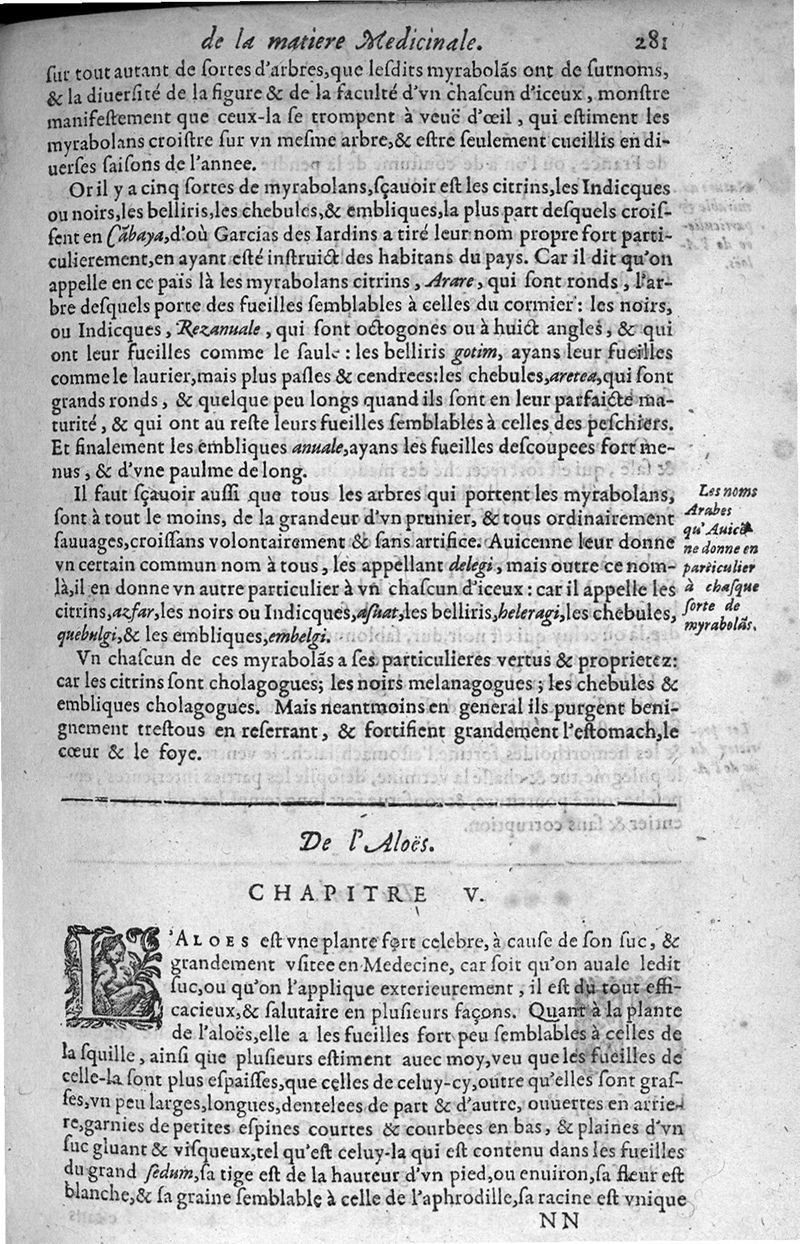 de la matiere Medicinale. 281
ſur tout autant de ſortes d'arbres,que leſdits myrabolãs ont de ſurnoms,
& la diuerſité de la figure & de la faculté d'vn chaſcun d'iceux, monſtre
manifeſtement que ceux-la ſe trompent à veuë d'œil, qui eſtiment les
myrabolans croiſtre ſur vn meſme arbre,& eſtre ſeulement cueillis en di-
uerſes ſaiſons de l'annee.
Or il y a cinq ſortes de myrabolans,ſçauoir eſt les citrins,les Indicques
ou noirs,les belliris,les chebules,& embliques,la plus part deſquels croiſ-
ſent en Cãbaya,d'où Garcias des Iardins a tiré leur nom propre fort parti-
culierement,en ayant eſté inſtruict des habitans du pays. Car il dit qu'on
appelle en ce païs là les myrabolans citrins, Arare, qui ſont ronds, l'ar-
bre deſquels porte des fueilles ſemblables à celles du cormier: les noirs,
ou Indicques, Rezanuale, qui ſont octogones ou à huict angles, & qui
ont leur fueilles comme le ſaule: les belliris gotim, ayans leur fueilles
comme le laurier,mais plus paſles & cendrees:les chebules,aretea,qui ſont
grands ronds, & quelque peu longs quand ils ſont en leur parfaicte ma-
turité, & qui ont au reſte leurs fueilles ſemblables à celles des peſchiers.
Et finalement les embliques anuale,ayans les fueilles deſcoupees fort me-
nus, & d'vne paulme de long.
Il faut ſçauoir auſſi que tous les arbres qui portent les myrabolans,
ſont à tout le moins, de la grandeur d'vn prunier, & tous ordinairement
ſauuages,croiſſans volontairement & ſans artifice. Auicenne leur donne
vn certain commun nom à tous, les appellant delegi, mais outre ce nom-
là,il en donne vn autre particulier à vn chaſcun d'iceux: car il appelle les
citrins,azfar,les noirs ou Indicques,aſuat,les belliris,beleragi,les chebules,
quebulgi,& les embliques,embelgi.
Les noms
Arabes
qu'Auicẽ
ne donne en
particulier
à chaſque
ſorte de
myrabolãs.
Vn chaſcun de ces myrabolãs a ſes particulieres vertus & proprietez:
car les citrins ſont cholagogues; les noirs melanagogues; les chebules &
embliques cholagogues. Mais neantmoins en general ils purgent beni-
gnement treſtous en reſerrant, & fortifient grandement l'eſtomach,le
cœur & le foye.
De l'Aloës.
CHAPITRE V.
L'ALOES eſt vne plante fort celebre, à cauſe de ſon ſuc, &
grandement vſitee en Medecine, car ſoit qu'on auale ledit
ſuc,ou qu'on l'applique exterieurement, il eſt du tout effi-
cacieux,& ſalutaire en pluſieurs façons. Quant à la plante
de l'aloës,elle a les fueilles fort peu ſemblables à celles de
la ſquille, ainſi que pluſieurs eſtiment auec moy,veu que les fueilles de
celle-la ſont plus eſpaiſſes,que celles de celuy-cy,outre qu'elles ſont graſ-
ſes,vn peu larges,longues,dentelees de part & d'autre, ouuertes en arrie-
re,garnies de petites eſpines courtes & courbees en bas, & plaines d'vn
ſuc gluant & viſqueux,tel qu'eſt celuy-la qui eſt contenu dans les fueilles
du grand ſedum,ſa tige eſt de la hauteur d'vn pied,ou enuiron,ſa fleur eſt
blanche,& ſa graine ſemblable à celle de l'aphrodille,ſa racine eſt vnique
NN